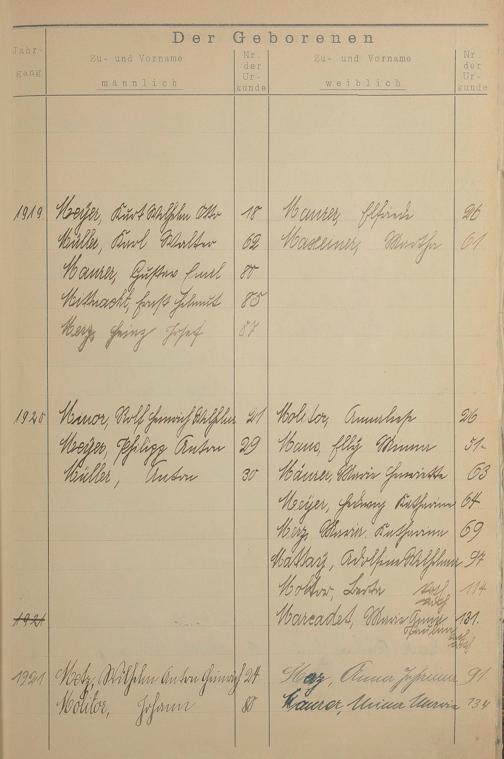 Der Geborenen
Jahr- Zu- und Vorname Nr. Zu- und Vorname Nr.
gang männlich der weiblich der
Ur- Ur-
kunde kunde
1919 Meyer, Kurt Wilhelm Otto 18 Maurer, Elfriede 26
Müller, Karl Walter 62 Maxeiner, Martha 61
Maurer, Gustav Emil 80
Mitnacht, Ernst Helmut 85
Merz, Heinz Josef 87
1920 Minor, Rolf Heinrich Wilhelm 21 Molitor, Anneliese 26
Meyer, Philipp Anton 29 Maus, Elly 51
Müller, Anton 30 Mäurer, Marie Henriette 63
Meyer, Hedwig Katharine 64
Merz, Maria Katharine 69
Mattay, Adolfine Wilhelmine 97
Berta
1921 Marcadet, Marie 131
1921 Metz, Wilhelm Anton Heinrich 24 Anna 91
Molitor, Johann 80 Maurer, Minna 134